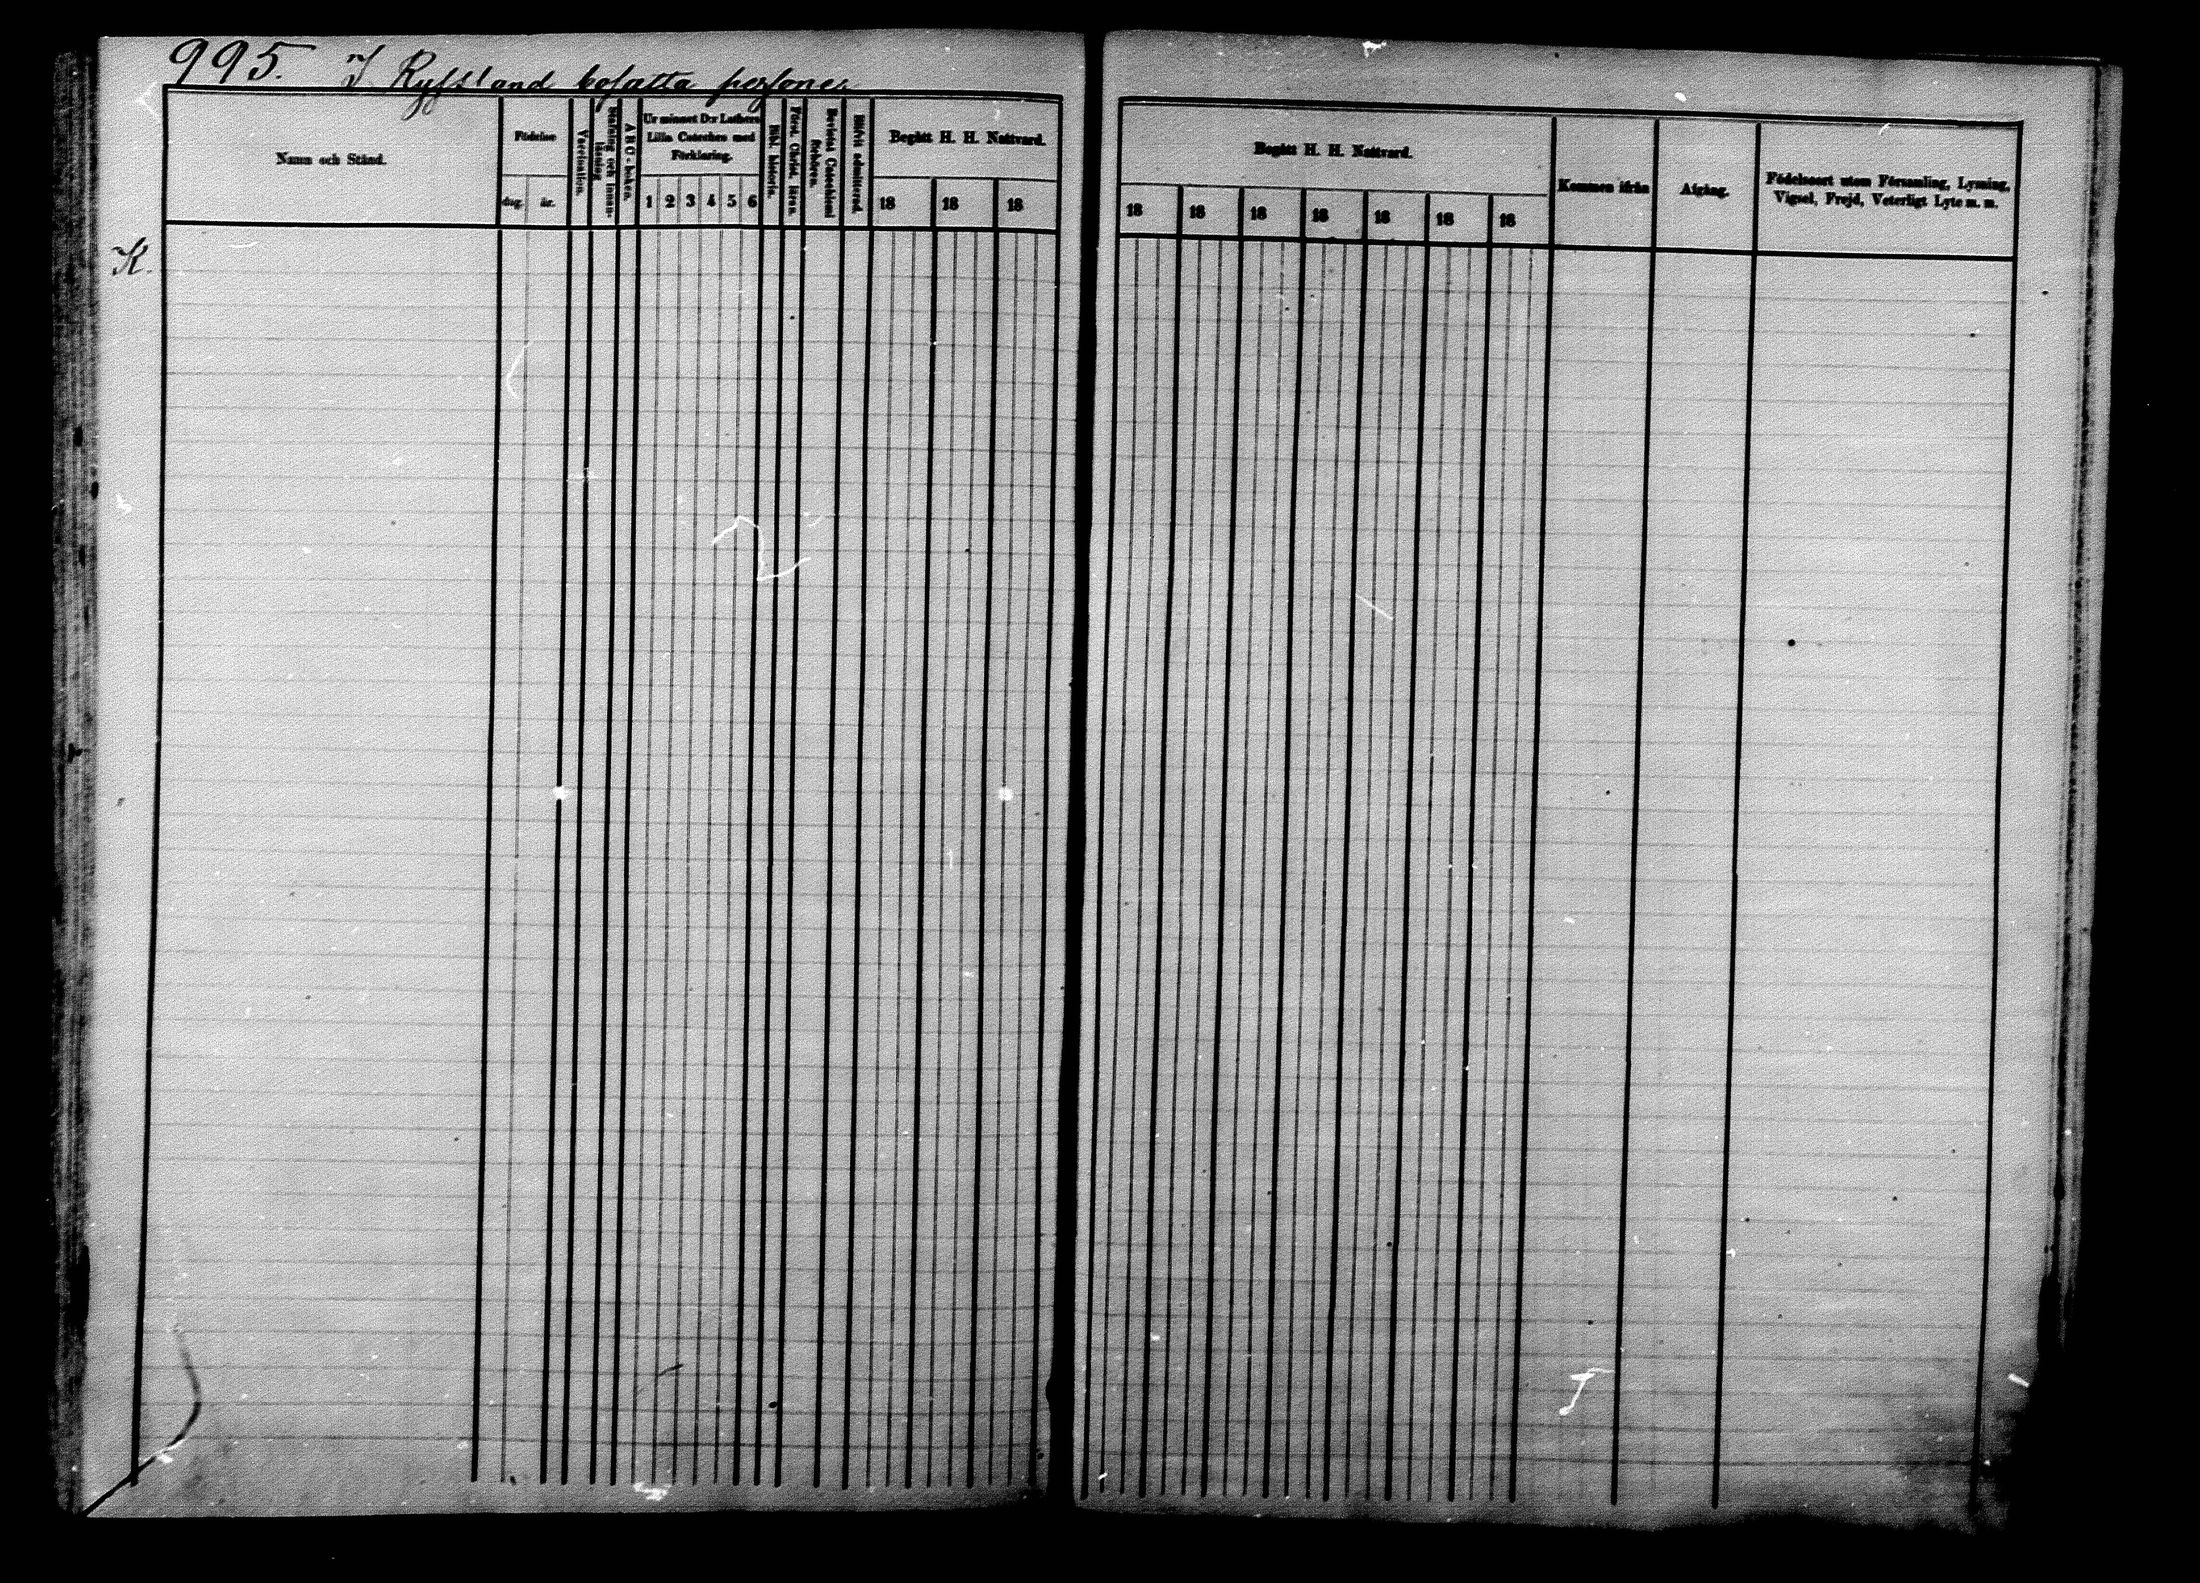 995. I Ryssland bosatta personer
Namn och Stånd.
Födelse
dag.
år.
Vaccination.
Stafning och Innan-
läsning
A B C-boken.
Ur minnet D:r Luthers
Lilla Cateches med
Förklaring.
1 2 3 4 5 6
Bibl. historia.
Först. Christ. läran.
Bevistat Catechismi
förhören.
Blifvit admitterad.
Begått H. H. Nattvard.
18 18 18
Begått H. H. Nattvard.
18 18 18 18 18 18 18
Kommen ifrån
Afgång.
Födelseort utom Församling, Lysning,
Vigsel, Frejd, Veterligt Lyte m. m.
K.